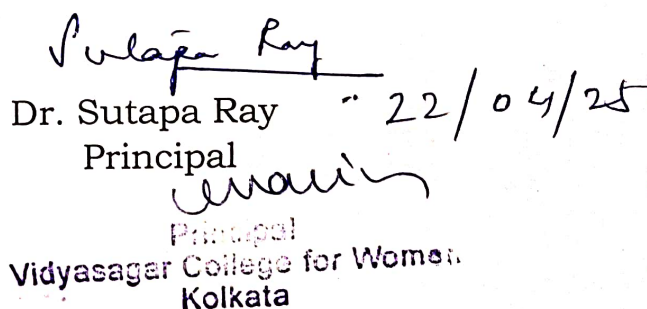 Sutapa Ray
Dr. Sutapa Ray
22/04/25
Principal
Principal
Vidyasagar College for Women
Kolkata